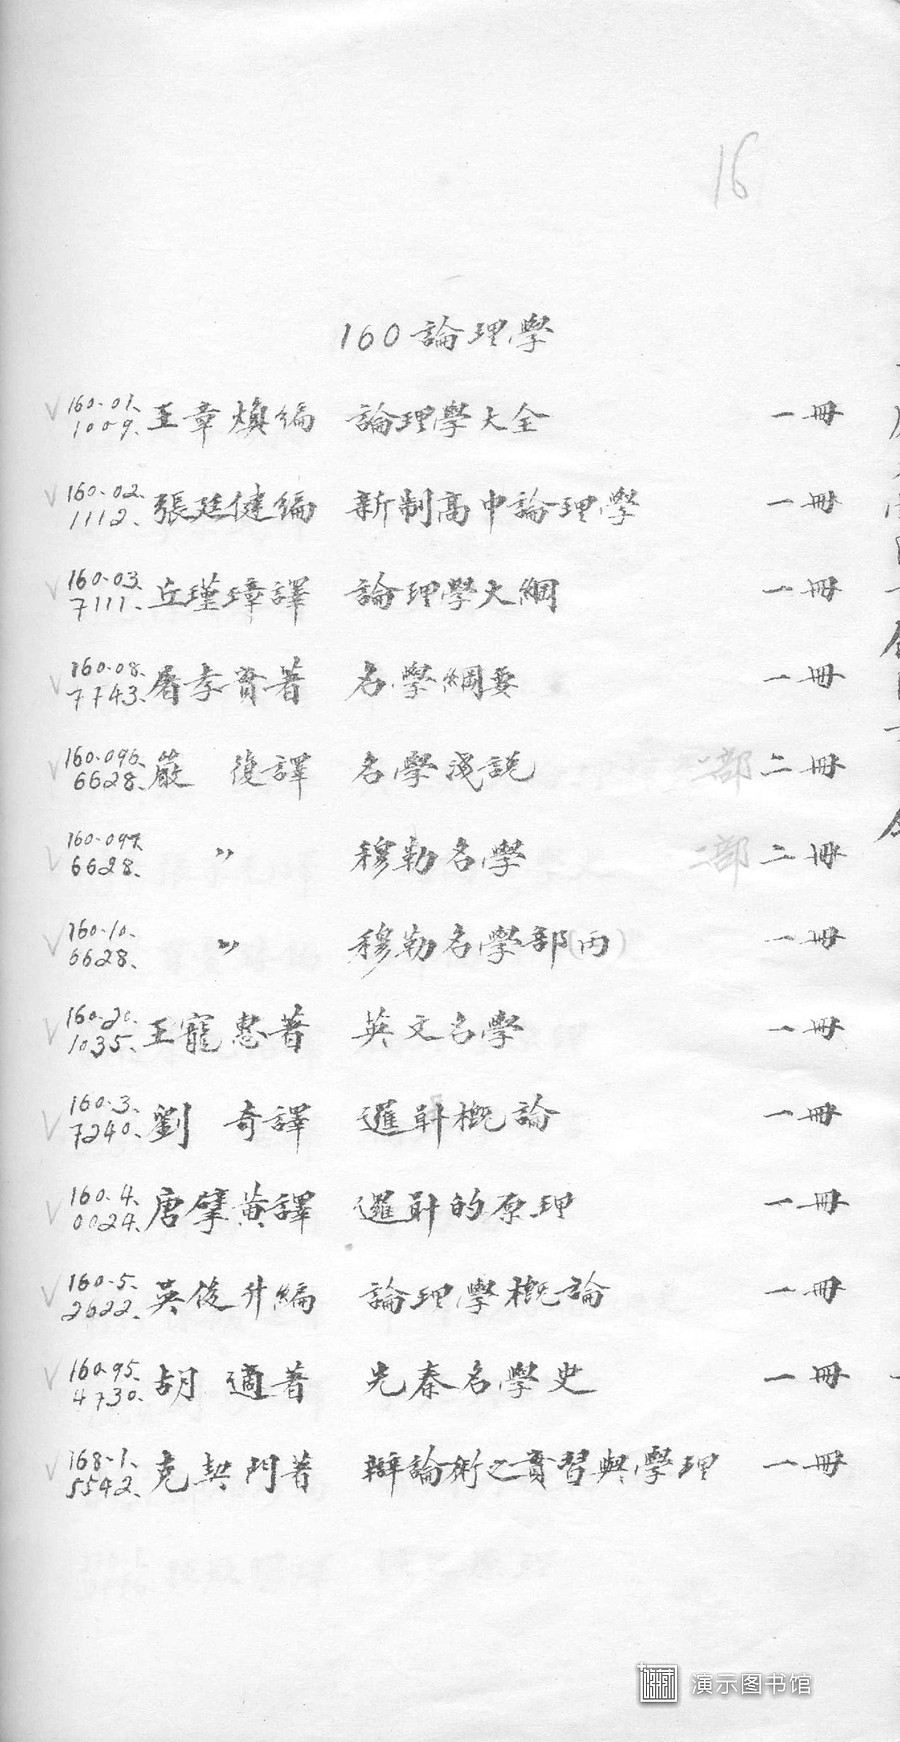 16
160 論理學
√ 160.01. 1009. 王章煥編 論理學大全 一冊
√ 160.02. 1112. 張廷健編 新制高中論理學 一冊
√ 160.03. 7111. 丘瑾璋譯 論理學大綱 一冊
√ 160.08. 7743. 屠孝實著 名學綱要 一冊
√ 160.096. 6628. 嚴 復譯 名學淺説 二部 二冊
√ 160.097. 6628. 〃 穆勒名學 二部 二冊
√ 160.10. 6628. 〃 穆勒名學部(丙) 一冊
√ 160.20. 1035. 王寵惠著 英文名學 一冊
√ 160.3. 7240. 劉 奇譯 邏輯概論 一冊
√ 160.4. 0024. 唐擘黃譯 邏輯的原理 一冊
√ 160.5. 2622. 俊升編 論理學概論 一冊
√ 160.95. 4730. 胡 適著 先秦名學史 一冊
√ 168.1. 5542. 克契門著 辯論術之實習與學理 一冊
演示图书馆